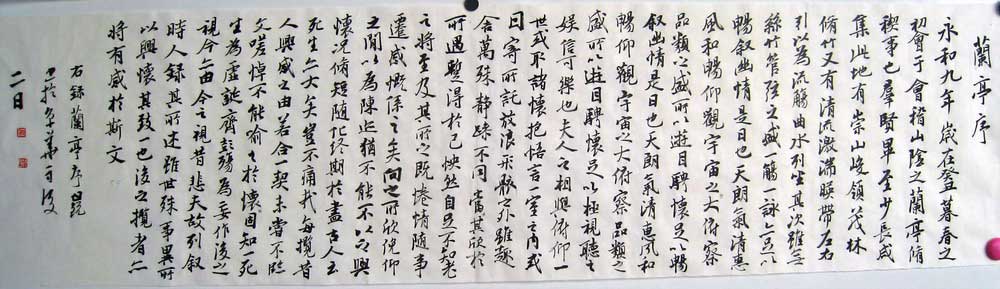 蘭亭序
永和九年歲在癸丑暮春之
初會于會稽山陰之蘭亭脩
稧事也羣賢畢至少長咸
集此地有崇山峻領茂林
脩竹又有清流激湍暎帶左右
引以為流觴曲水列坐其次雖無
絲竹管弦之盛一觴一詠亦足以
暢叙幽情是日也天朗氣清惠
風和暢仰觀宇宙之大俯察
品類之盛所以遊目騁懷足以暢
叙幽情是日也天朗氣清惠風和
暢仰觀宇宙之大俯察品類之
盛所以遊目騁懷足以極視聽之
娛信可樂也夫人之相與俯仰一
世或諸懷抱悟言一室之內或
因寄所託放浪形骸之外雖趣
舍萬殊靜躁不同當其欣於
所遇蹔得於己快然自足不知老
之將至及其所之既惓情隨事
遷感慨係之矣向之所欣俛仰
之間以為陳迹猶不能不以之興
懷況脩短隨化終期於盡古人云
死生亦大矣豈不痛哉每攬昔
人興感之由若合一契未嘗不臨
文嗟悼不能喻之於懷固知一死
生為虛誕齊彭殤為妄作後之
視今亦由今之視昔悲夫故列叙
時人録其所述雖世殊事異所
以興懷其致一也後之攬者亦
將有感於斯文
右録蘭亭序
二日